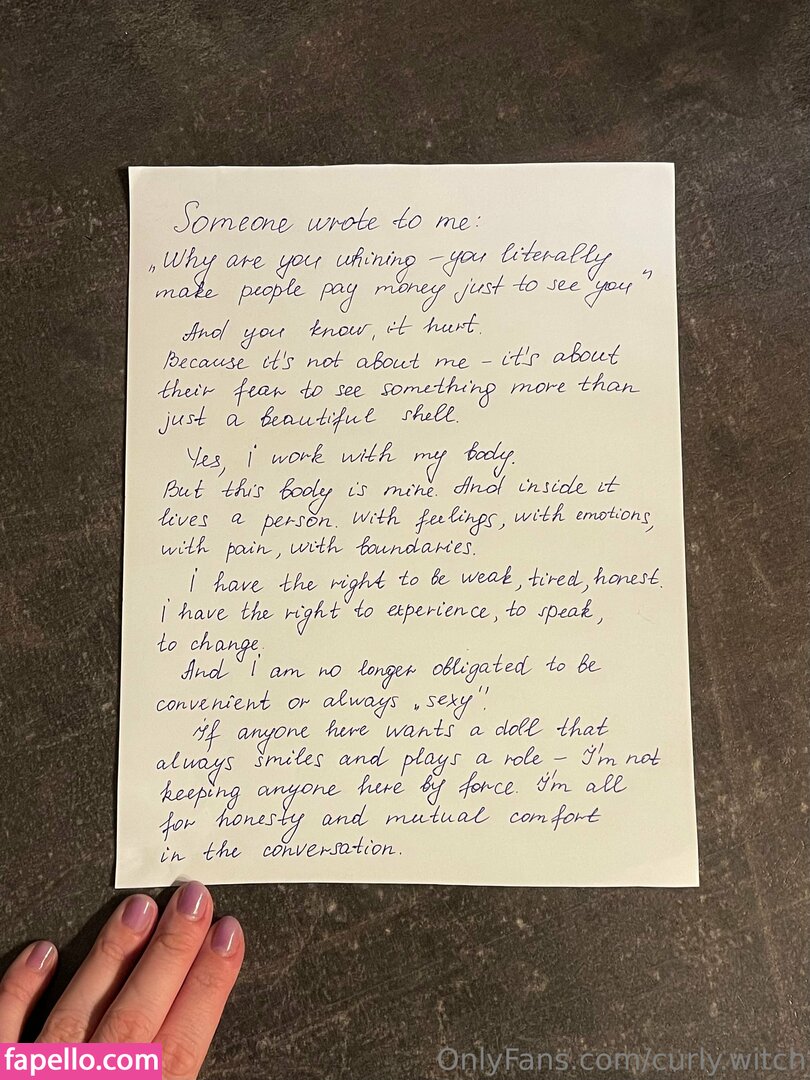 Someone wrote to me:
„Why are you whining – you literally
make people pay money just to see you”
And you know, it hurt.
Because it's not about me – it's about
their fear to see something more than
just a beautiful shell.
Yes, i work with my body.
But this body is mine. And inside it
lives a person. With feelings, with emotions,
with pain, with boundaries.
I have the right to be weak, tired, honest.
i have the right to experience, to speak,
to change.
And I am no longer obligated to be
convenient or always „sexy”.
If anyone here wants a doll that
always smiles and plays a role – I'm not
keeping anyone here by force. I'm all
for honesty and mutual comfort
in the conversation.
fapello.com
OnlyFans.com/curly.witch